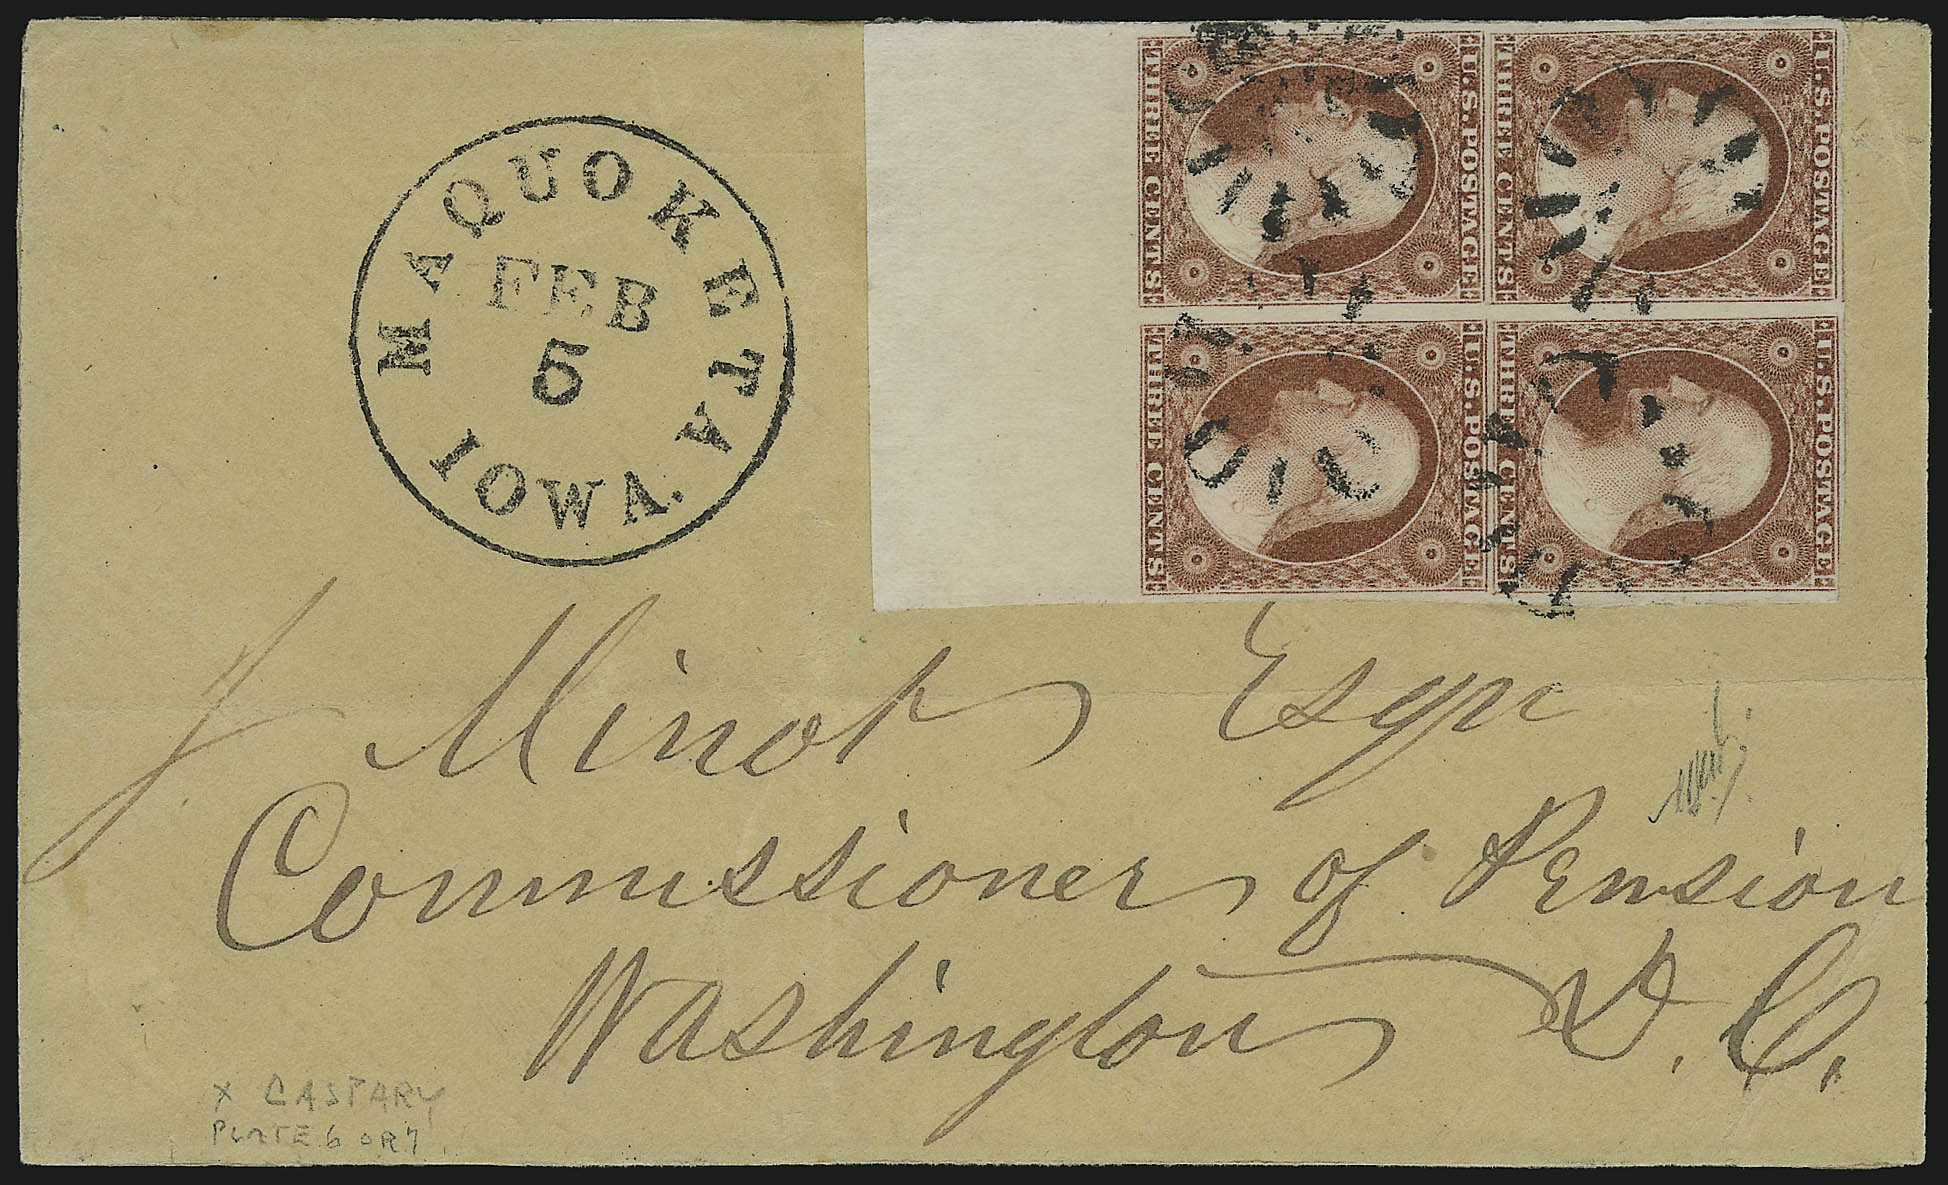 MAQUOKETA
FEB
5
IOWA.
THREE CENTS U.S. POSTAGE THREE CENTS U.S. POSTAGE
THREE CENTS U.S. POSTAGE THREE CENTS U.S. POSTAGE
J Minot Esqr
Commissioner of Pension
Washington D.C.
X CASPARY
PLATE 6 OR 7